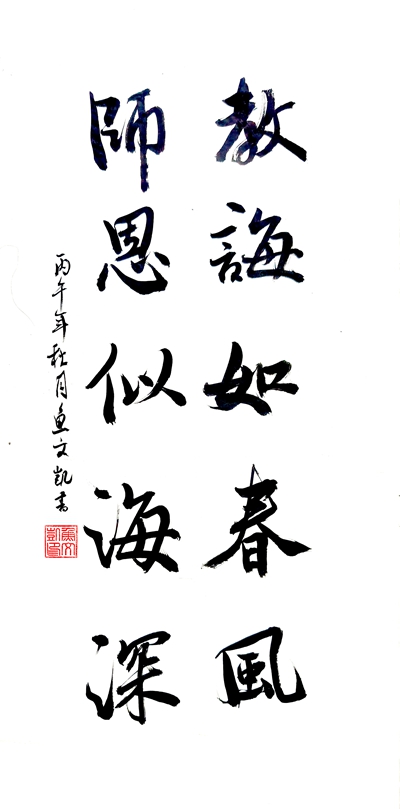 教誨如春風
師恩似海深
丙午年秋月焦文凱書